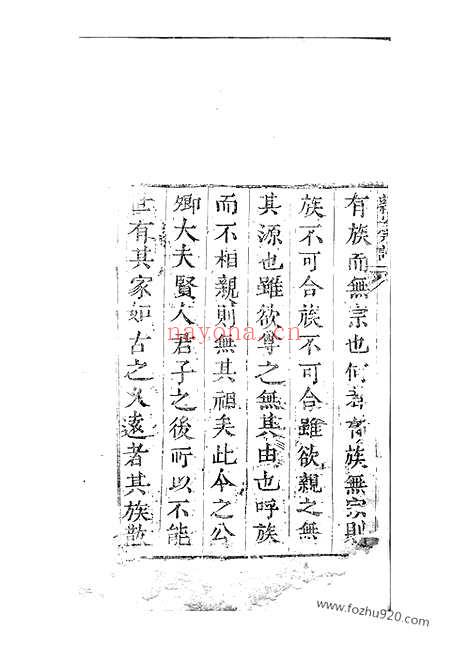 有族而無宗也何者有族無宗則
族不可合族不可合雖欲親之無
其源也雖欲尊之無其由也呼族
而不相親則無其祖矣此今之公
卿大夫賢人君子之後所以不能
世有其家如古之久遠者其族散
nayona.cn
www.fozhu920.com